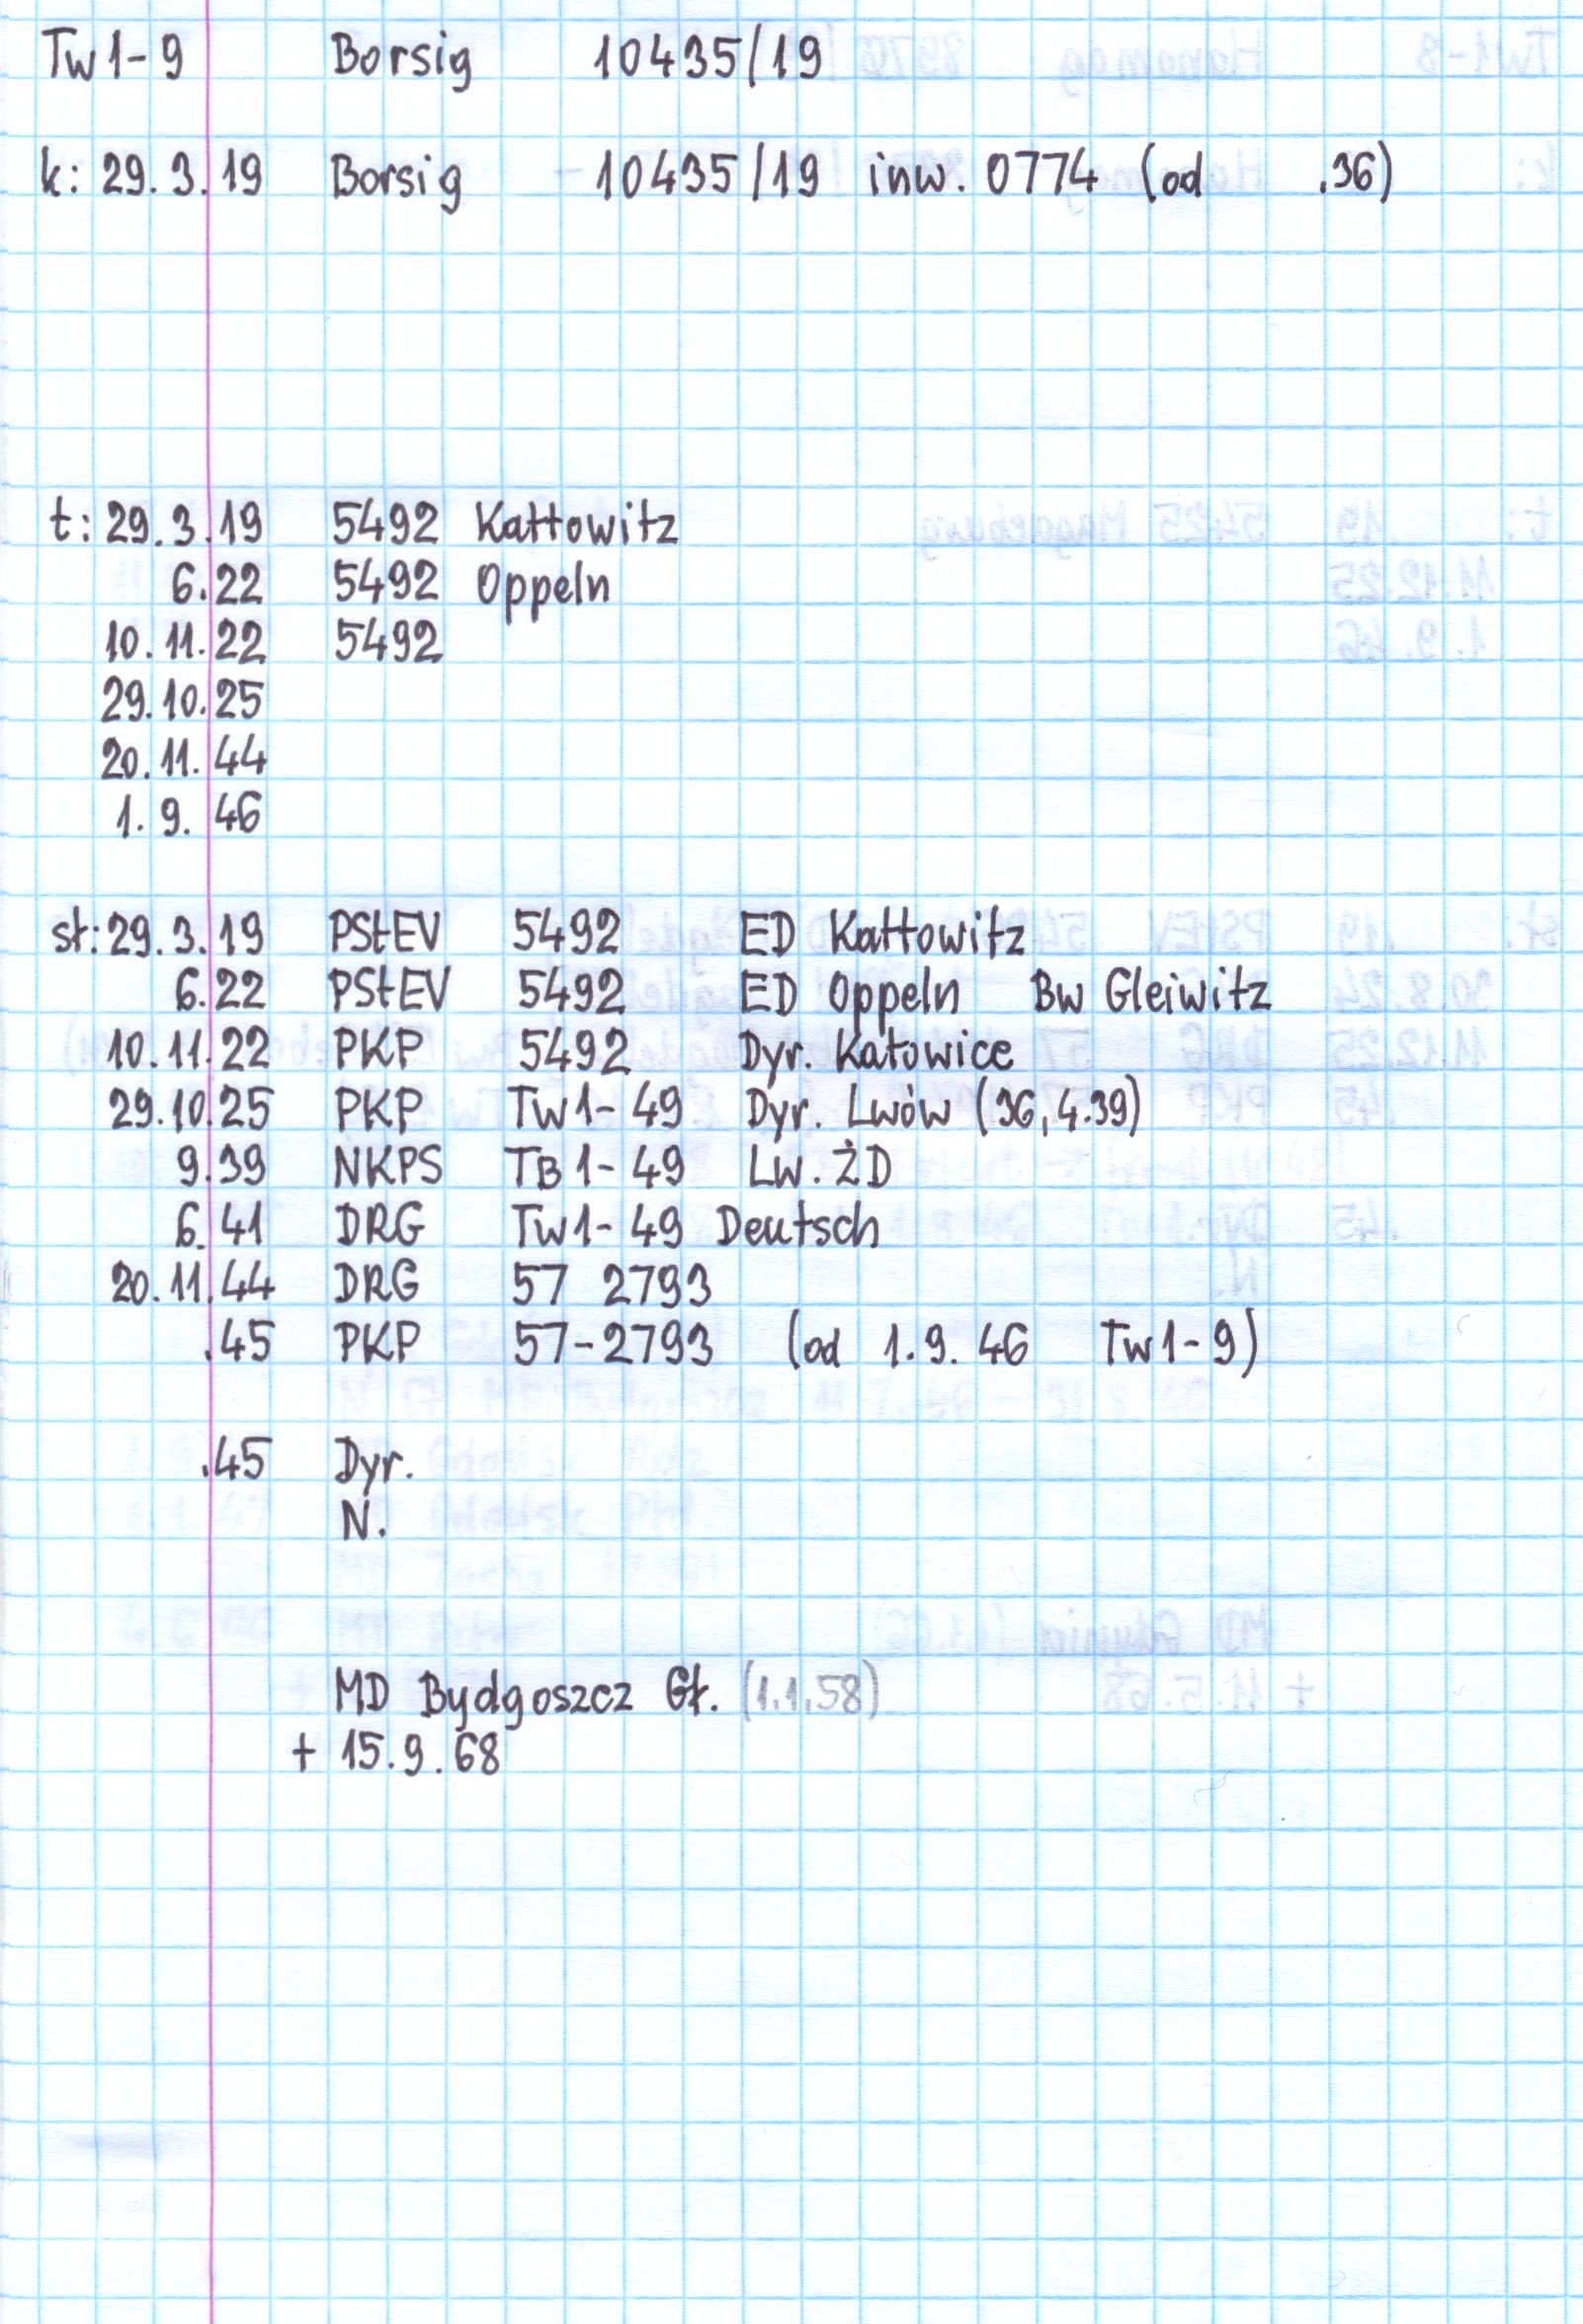 Tw1-9 Borsig 10435/19
k: 29.3.19 Borsig 10435/19 inw. 0774 (od .36)
t: 29.3.19 5492 Kattowitz
6.22 5492 Oppeln
10.11.22 5492
29.10.25
20.11.44
1.9.46
st: 29.3.19 PStEV 5492 ED Kattowitz
6.22 PStEV 5492 ED Oppeln Bw Gleiwitz
10.11.22 PKP 5492 Dyr. Katowice
29.10.25 PKP Tw1-49 Dyr. Lwów (36, 4.39)
9.39 NKPS TB1-49 Lw. ŻD
6.41 DRG Tw1-49 Deutsch
20.11.44 DRG 57 2793
.45 PKP 57-2793 (od 1.9.46 Tw1-9)
.45 Dyr.
N.
MD Bydgoszcz Gł. (1.1.58)
+ 15.9.68